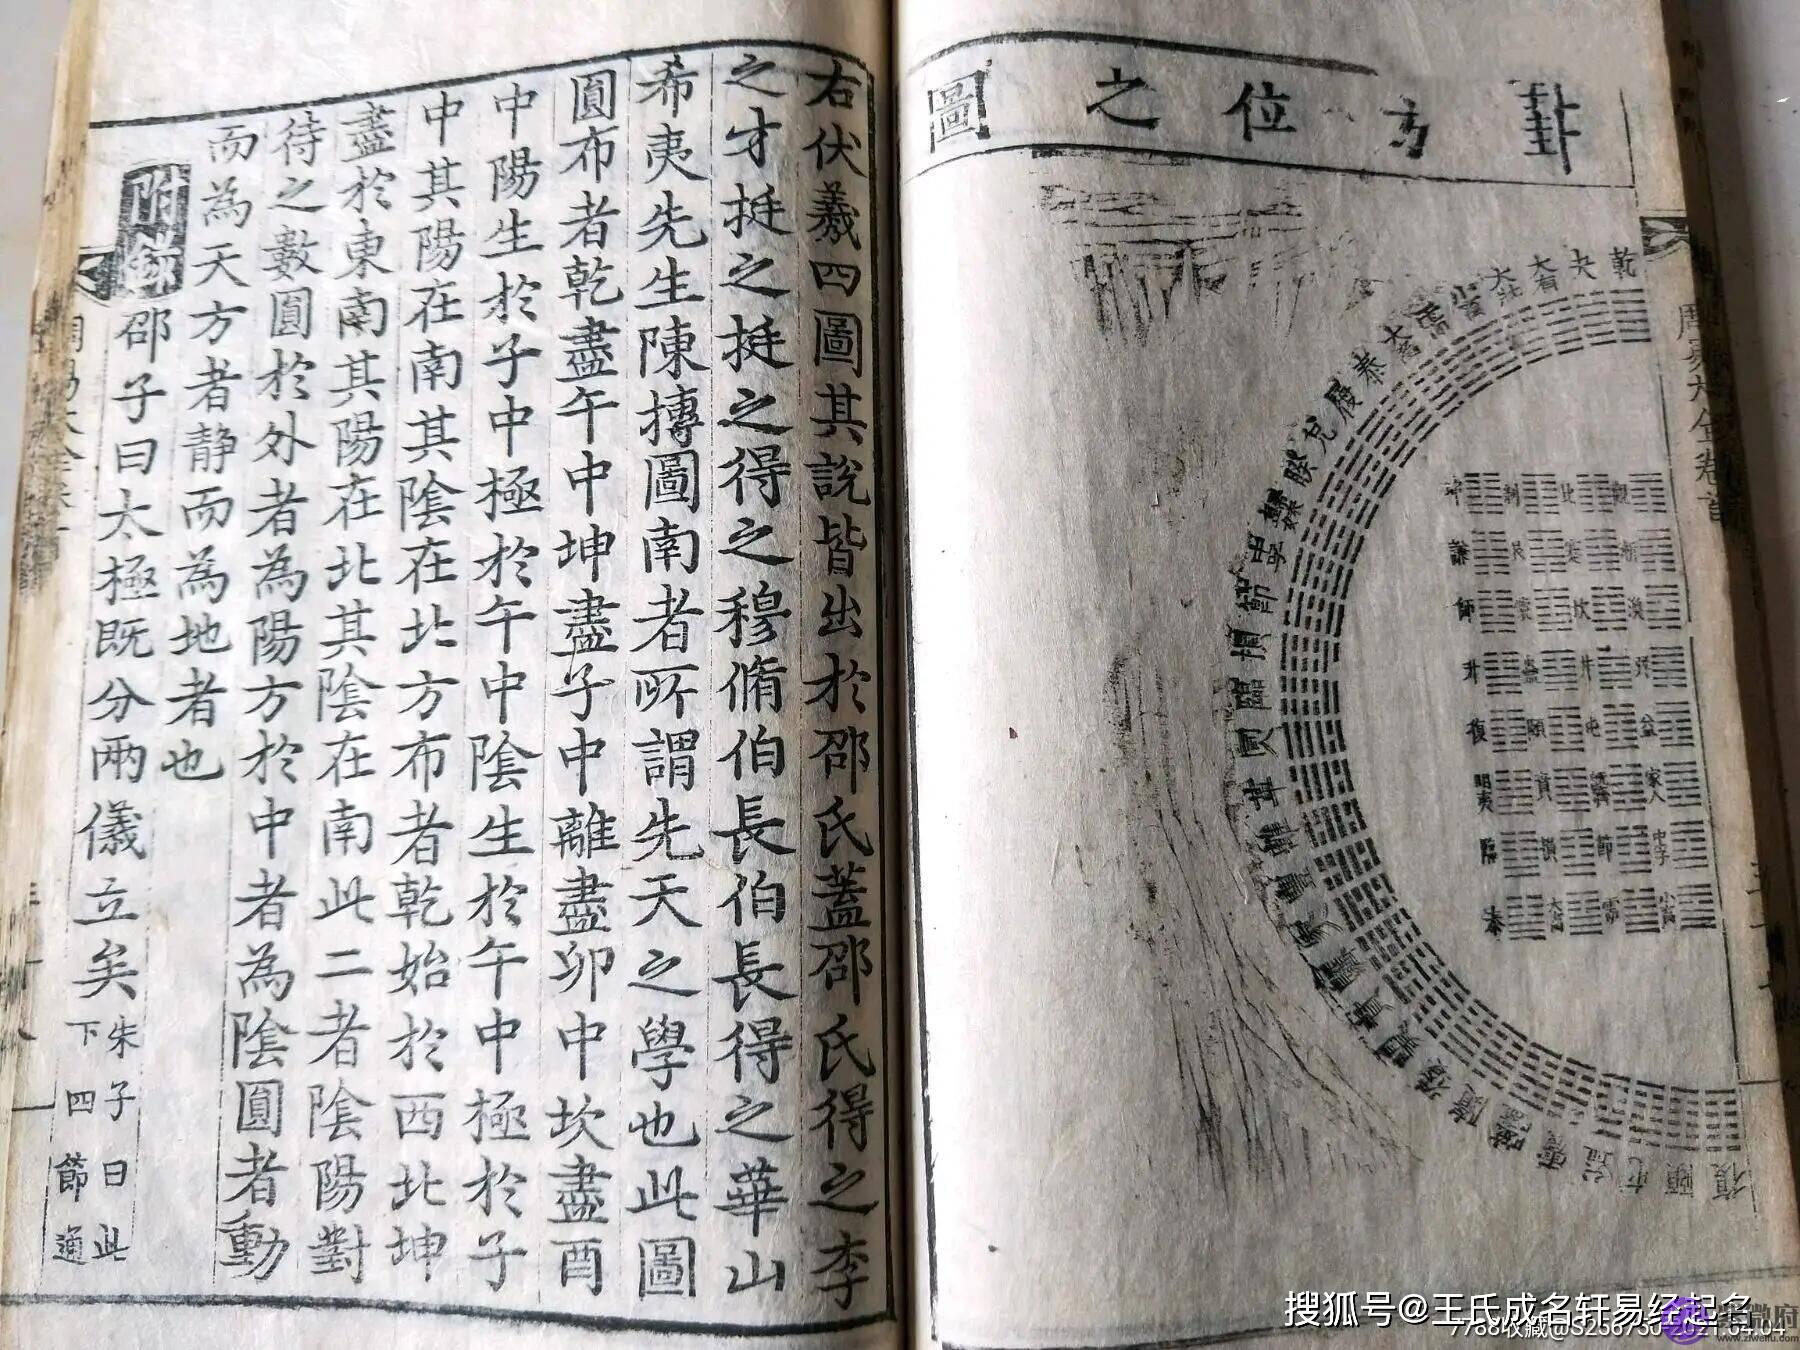 卦方位之圖
乾
夬
大有
大壯
小畜
需
大畜
泰
履
兌
睽
歸妹
中孚
節
損
臨
同人
革
離
豐
家人
既濟
賁
明夷
无妄
頤
復
坤 剝 比 觀
謙 艮 蹇 漸
師 蒙 坎 渙
升 蠱 井 巽
復 頤 屯 益
明夷 賁 既濟 家人
臨 損 節 中孚
泰 大畜 需 小畜
右伏羲四圖其說皆出於邵氏蓋邵氏得之李
之才挺之挺之得之穆脩伯長伯長得之華山
希夷先生陳摶圖南者所謂先天之學也此圖
圓布者乾盡午中坤盡子中離盡卯中坎盡酉
中陽生於子中極於午中陰生於午中極於子
中其陽在南其陰在北方布者乾始於西北坤
盡於東南其陽在北其陰在南此二者陰陽對
待之數圓於外者為陽方於中者為陰圓者動
而為天方者靜而為地者也
附錄 邵子曰太極既分兩儀立矣
朱子曰此
下四節通
搜狐号@王氏成名轩易经起名